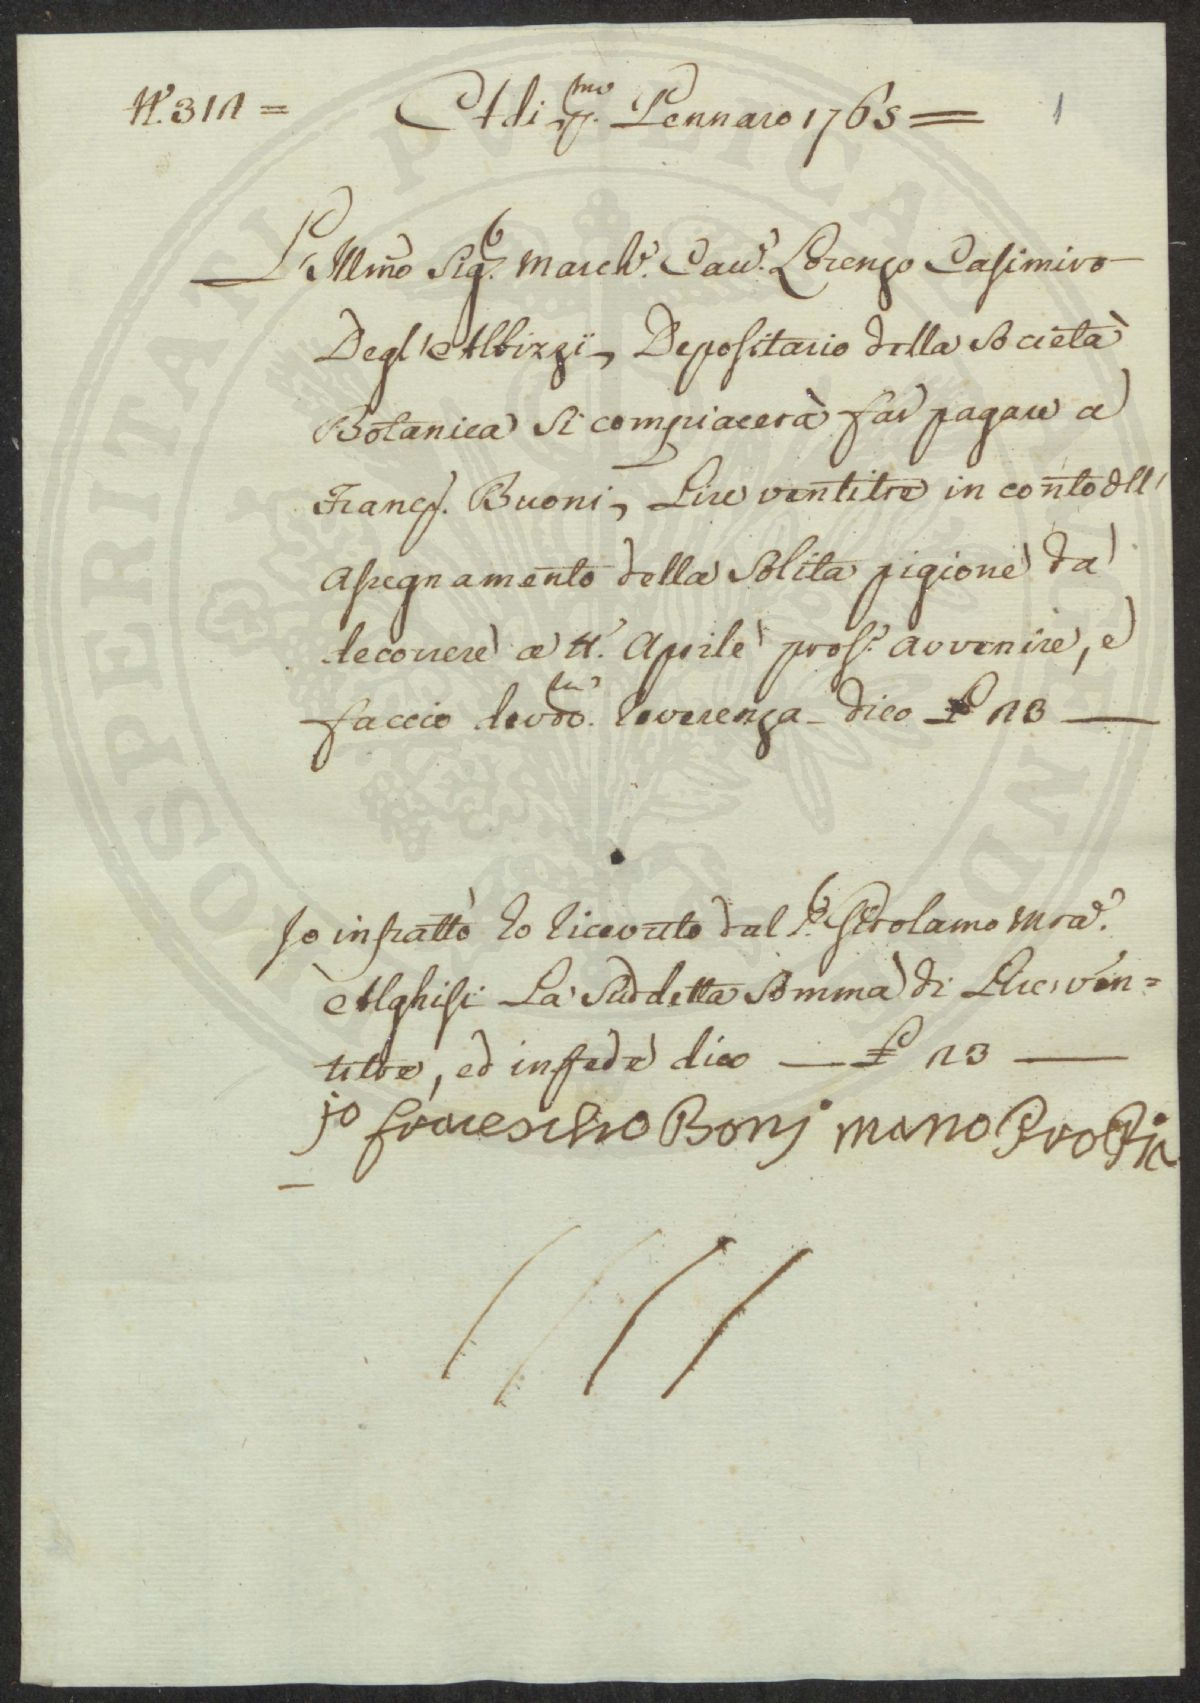 N.° 312 = Adì p.mo Gennaro 1765 = 1
L'Illmo Sig.r March.e Cav.e Lorenzo Casimiro
Degl'Albizzi, Depositario della Società
Botanica si compiacerà far pagare a
Franc.o Buoni, Lire ventitre in conto dell'
assegnamento della solita pigione da
decorrere a tt.o Aprile pross.o avvenire, e
faccio devotma reverenza dico £ 23 —
Io infratto ho ricevuto dal S.r Girolamo Mra.
Alghisi La suddetta somma di Lire ven=
titre, ed in fede dico — £ 23 —
io francescho Boni mano Propia
PROSPERITATI PVBLICAE